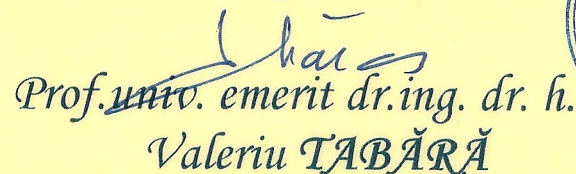 Prof.univ. emerit dr.ing. dr. h.
Valeriu TABĂRĂ